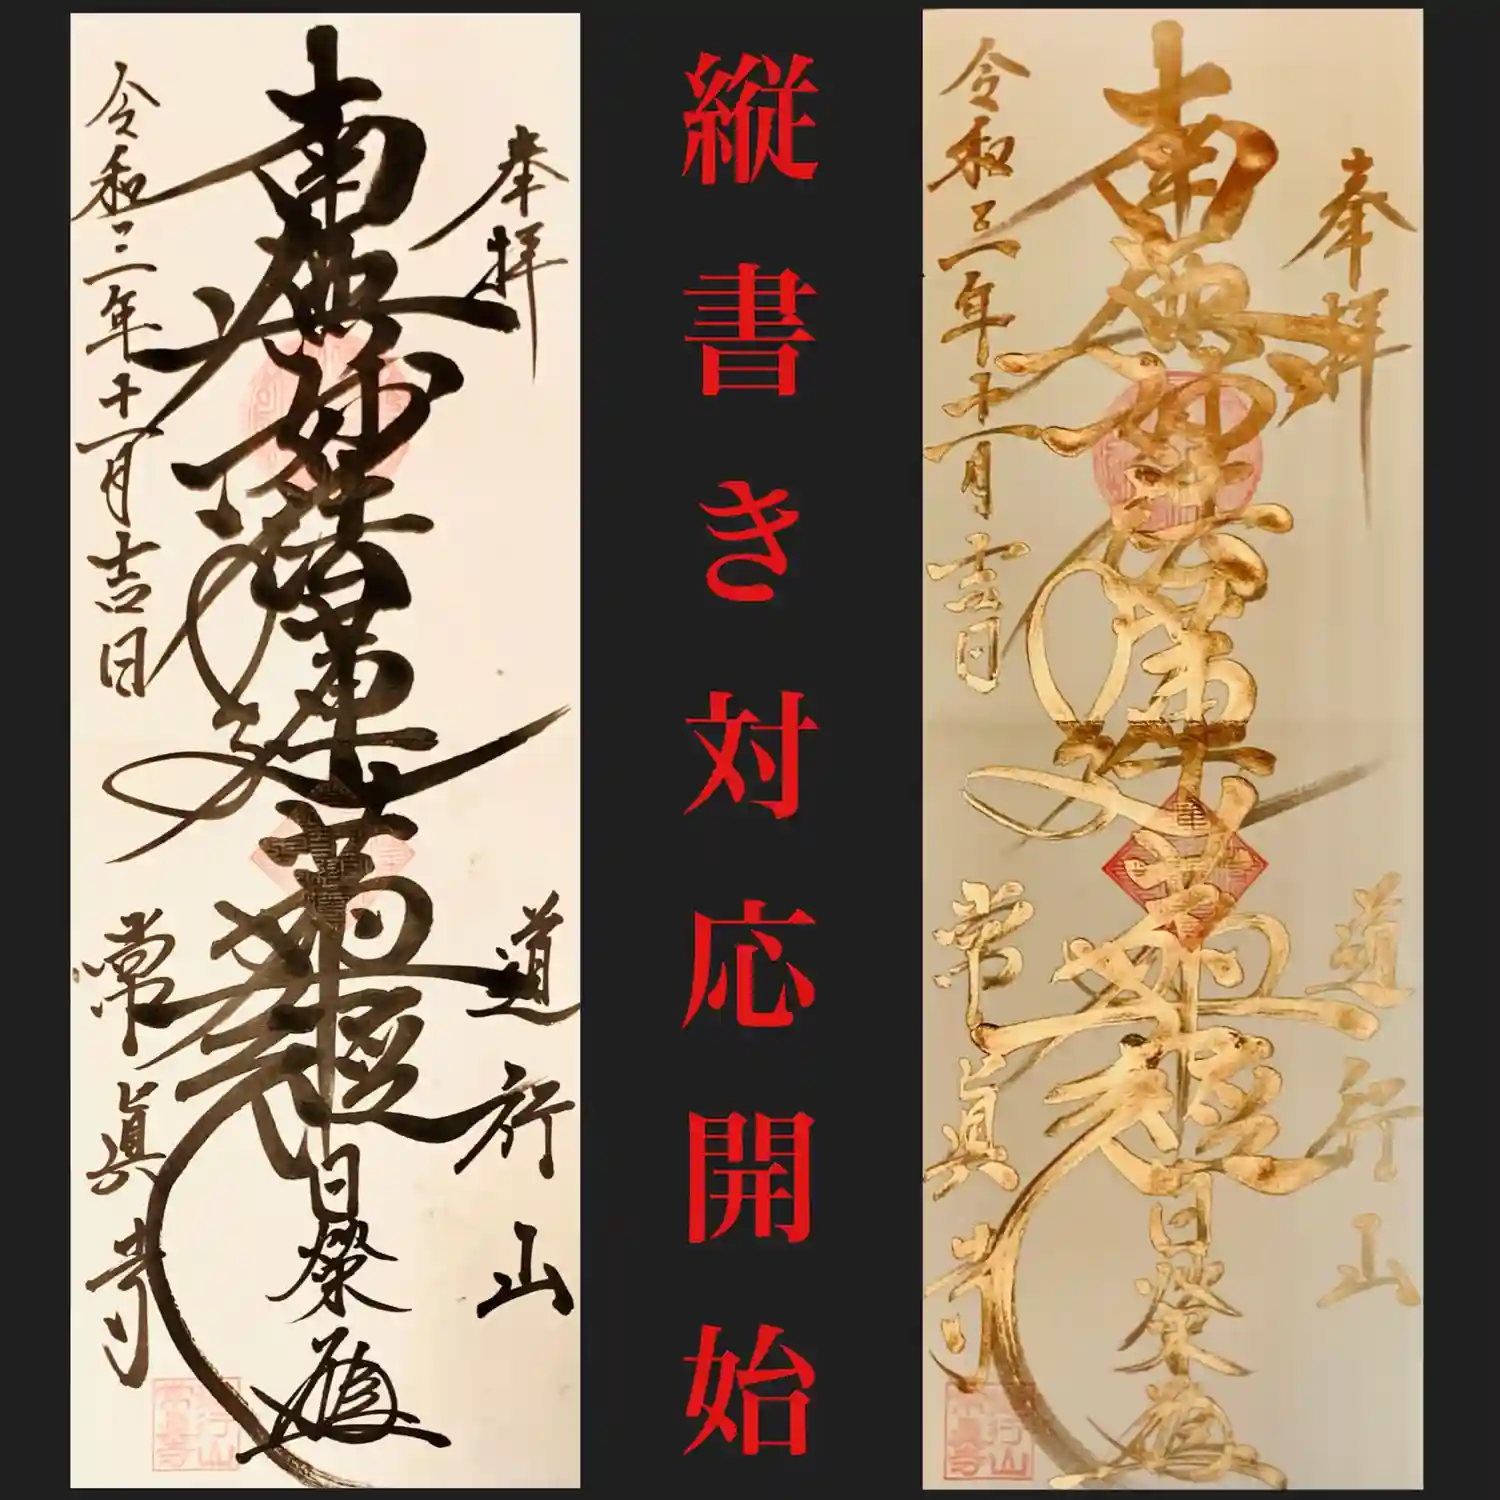 奉拝
南無妙法蓮華経
日榮
令和三年十一月吉日
道行山
常眞寺
縦書き対応開始
奉拝
南無妙法蓮華経
日榮
令和三年十一月吉日
道行山
常眞寺